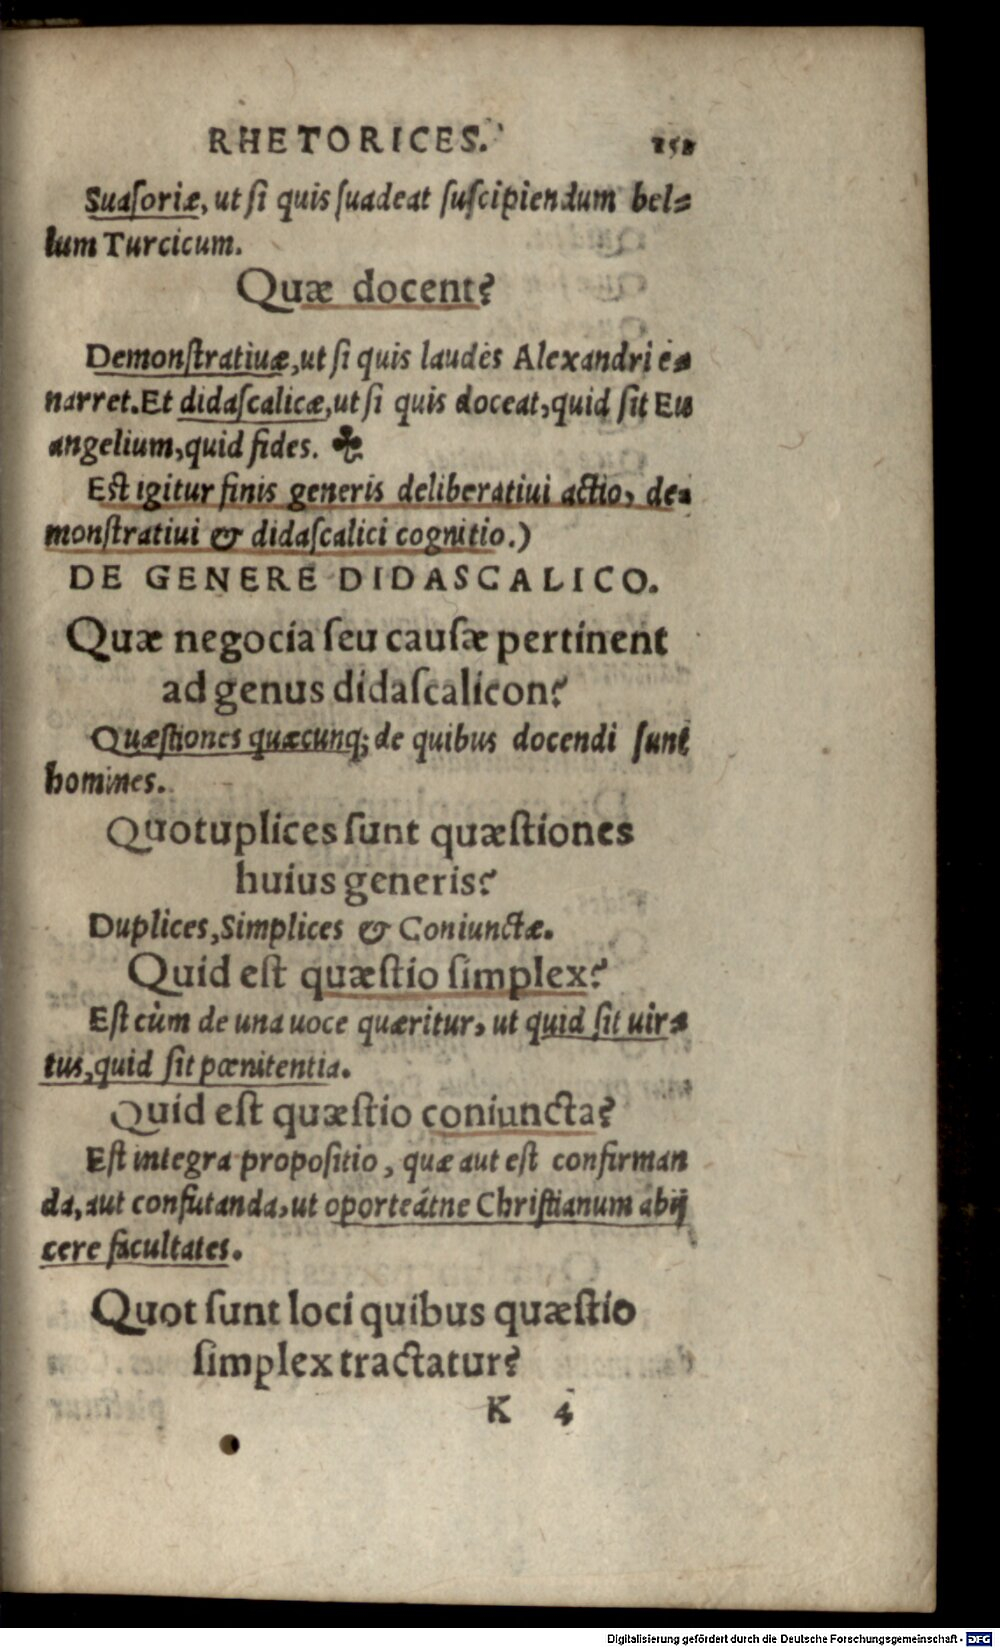 RHETORICES. 152
Suaſoriæ, ut ſi quis ſuadeat ſuſcipiendum bel⸗
lum Turcicum.
Quæ docent?
Demonſtratiuæ, ut ſi quis laudes Alexandri e⸗
narret. Et didaſcalicæ, ut ſi quis doceat, quid ſit Eu
angelium, quid fides. ☘
Eſt igitur finis generis deliberatiui actio, de⸗
monſtratiui & didaſcalici cognitio.)
DE GENERE DIDASCALICO.
Quæ negocia ſeu cauſæ pertinent
ad genus didaſcalicon?
Quæſtiones quæcunq; de quibus docendi ſunt
homines.
Quotuplices ſunt quæſtiones
huius generis?
Duplices, Simplices & Coniunctæ.
Quid eſt quæſtio ſimplex?
Eſt cùm de una uoce quæritur, ut quid ſit uir⸗
tus, quid ſit pœnitentia.
Quid eſt quæſtio coniuncta?
Eſt integra propoſitio, quæ aut eſt confirman
da, aut confutanda, ut oporteátne Chriſtianum abij
cere facultates.
Quot ſunt loci quibus quæſtio
ſimplex tractatur?
K 4
Digitalisierung gefördert durch die Deutsche Forschungsgemeinschaft - DFG